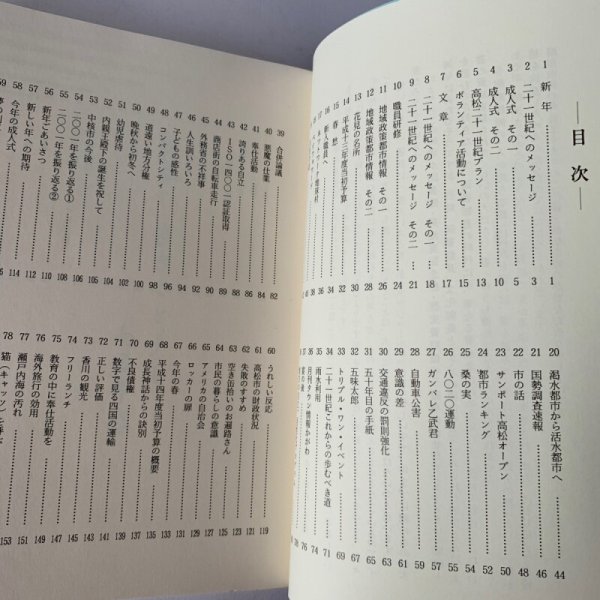 ―目 次―
1 新年 1
2 二十一世紀へのメッセージ 3
3 成人式 その一 5
4 成人式 その二
5 高松二十一世紀プラン
6 ボランティア活動について
7 文章
8 二十一世紀へのメッセージ その一 18
9 二十一世紀へのメッセージ その二 21
10 職員研修 24
11 地域政策都市情報 その一 26
12 地域政策都市情報 その二 28
13 花見の名所 30
14 平成十三年度当初予算 32
15 春想 34
16 新入職員へ 36
20 渇水都市から活水都市へ 44
21 国勢調査速報 46
22 市の話 48
23 サンポート高松オープン 50
24 都市ランキング 52
25 桑の実 54
26 八〇二〇運動 56
27 ガンバレ乙武君 58
28 自動車公害
29 意識の差
30 交通違反の罰則強化
31 五十年目の手紙
32 五味太郎
33 トリプル・ワン・イベント 69
34 二十一世紀これからの歩むべき道 71
35 雨水利用 74
36 月刊タウン情報かがわ 76
39 合併論議 82
40 悪魔の仕業 84
41 奉仕活動 86
42 誇りある自立 88
43 ISO一四〇〇一認証取得 90
44 商店街の自転車走行 92
45 外務省の不祥事 94
46 人生調いろいろ
47 子どもの感性
48 コンパクトシティ
49 道遠い地方分権
50 晩秋から初冬へ
51 幼児虐待
52 内親王殿下の誕生を祝して
53 中核市の今後
54 二〇〇一年を振り返る①
55 二〇〇一年を振り返る②
56 新年ごあいさつ
57 新しい年への期待
58 今年の成人式
60 うれしい反応 119
61 高松市の財政状況 121
62 失敗のすすめ 125
63 空き缶拾いのお遍路さん 127
64 市民の暮らしの意識 129
65 アメリカの自治会 131
66 ロッカーの扉 133
67 今年の春 135
68 平成十四年度当初予算の概要 136
69 成長神話からの訣別 137
70 不良債権 139
71 数字で見る四国の運輸 141
72 正しい評価 142
73 香川の観光 143
74 フリーランチ 145
75 教育の中に奉仕活動を 147
76 海外旅行の効用 149
77 瀬戸内海の汚れ 151
78 猫(キャッツ)を 153